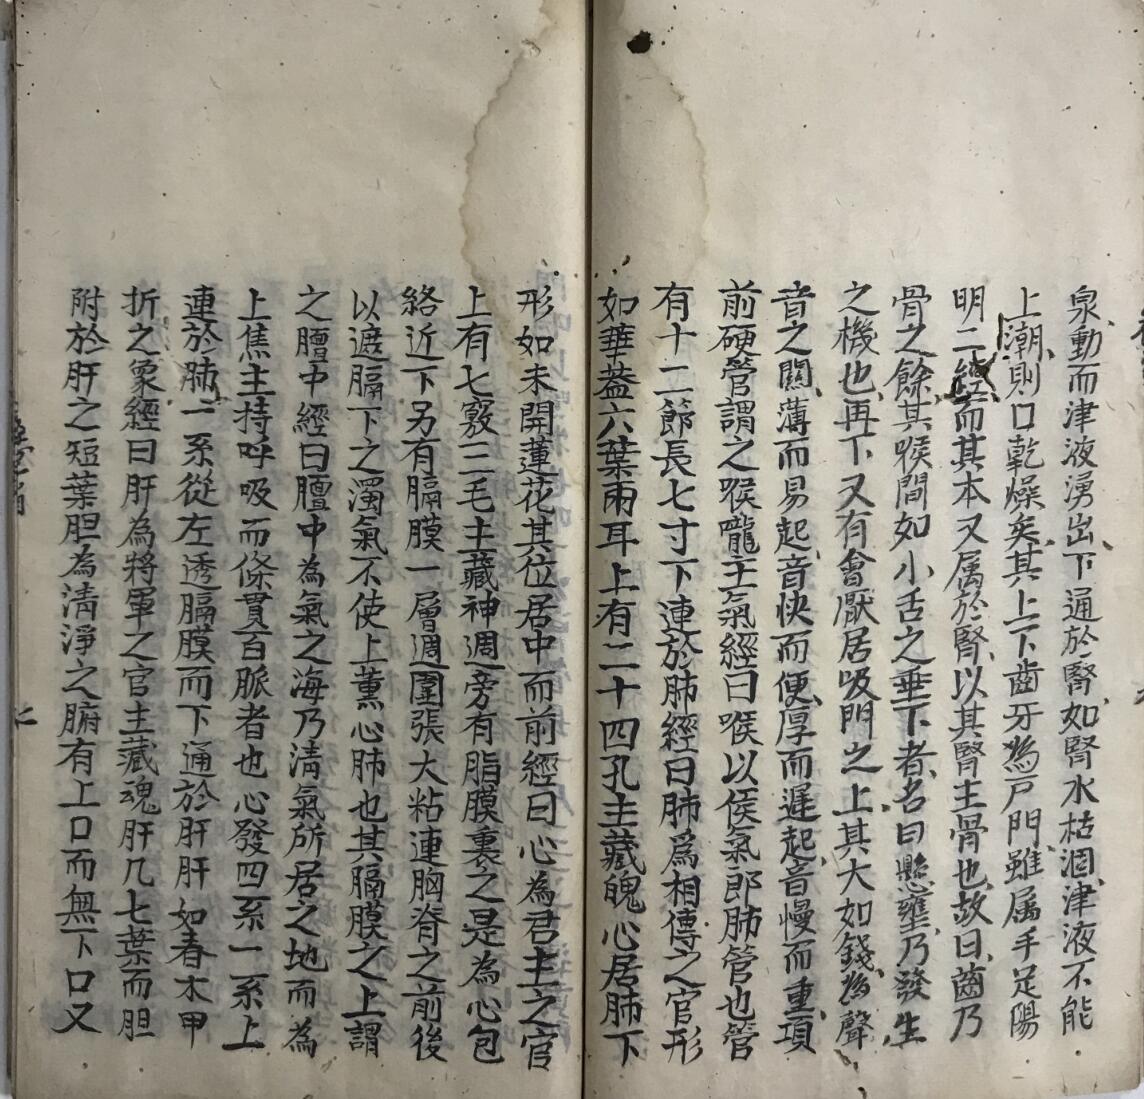 泉動而津液湧出下通於腎如腎水枯涸津液不能
上潮則口乾燥矣其上下齒牙為戸門雖属手足陽
明二經而其本又属於腎以其腎主骨也故曰齒乃
骨之餘其喉間如小舌之垂下者名曰懸壅乃發生
之機也再下又有會厭居吸門之上其大如錢為聲
音之關薄而易起音快而便厚而遲起音慢而重項
前硬管謂之喉嚨主氣經曰喉以侯氣郎肺管也管
有十二節長七寸下連於肺經曰肺為相傳之官形
如華蓋六葉兩耳上有二十四孔主藏魄心居肺下
形如未開蓮花其位居中而前經曰心為君主之官
上有七竅三毛主藏神週旁有脂膜裹之是為心包
絡近下另有膈膜一層週圍張大粘連胸脊之前後
以遮膈下之濁氣不使上薰心肺也其膈膜之上謂
之膻中經曰膻中為氣之海乃清氣所居之地而為
上焦主持呼吸而條貫百脈者也心發四系一系上
連於肺一系從左透膈膜而下通於肝肝如春木甲
折之象經曰肝為將軍之官主藏魂肝几七葉而胆
附於肝之短葉胆為清淨之腑有上口而無下口又
七